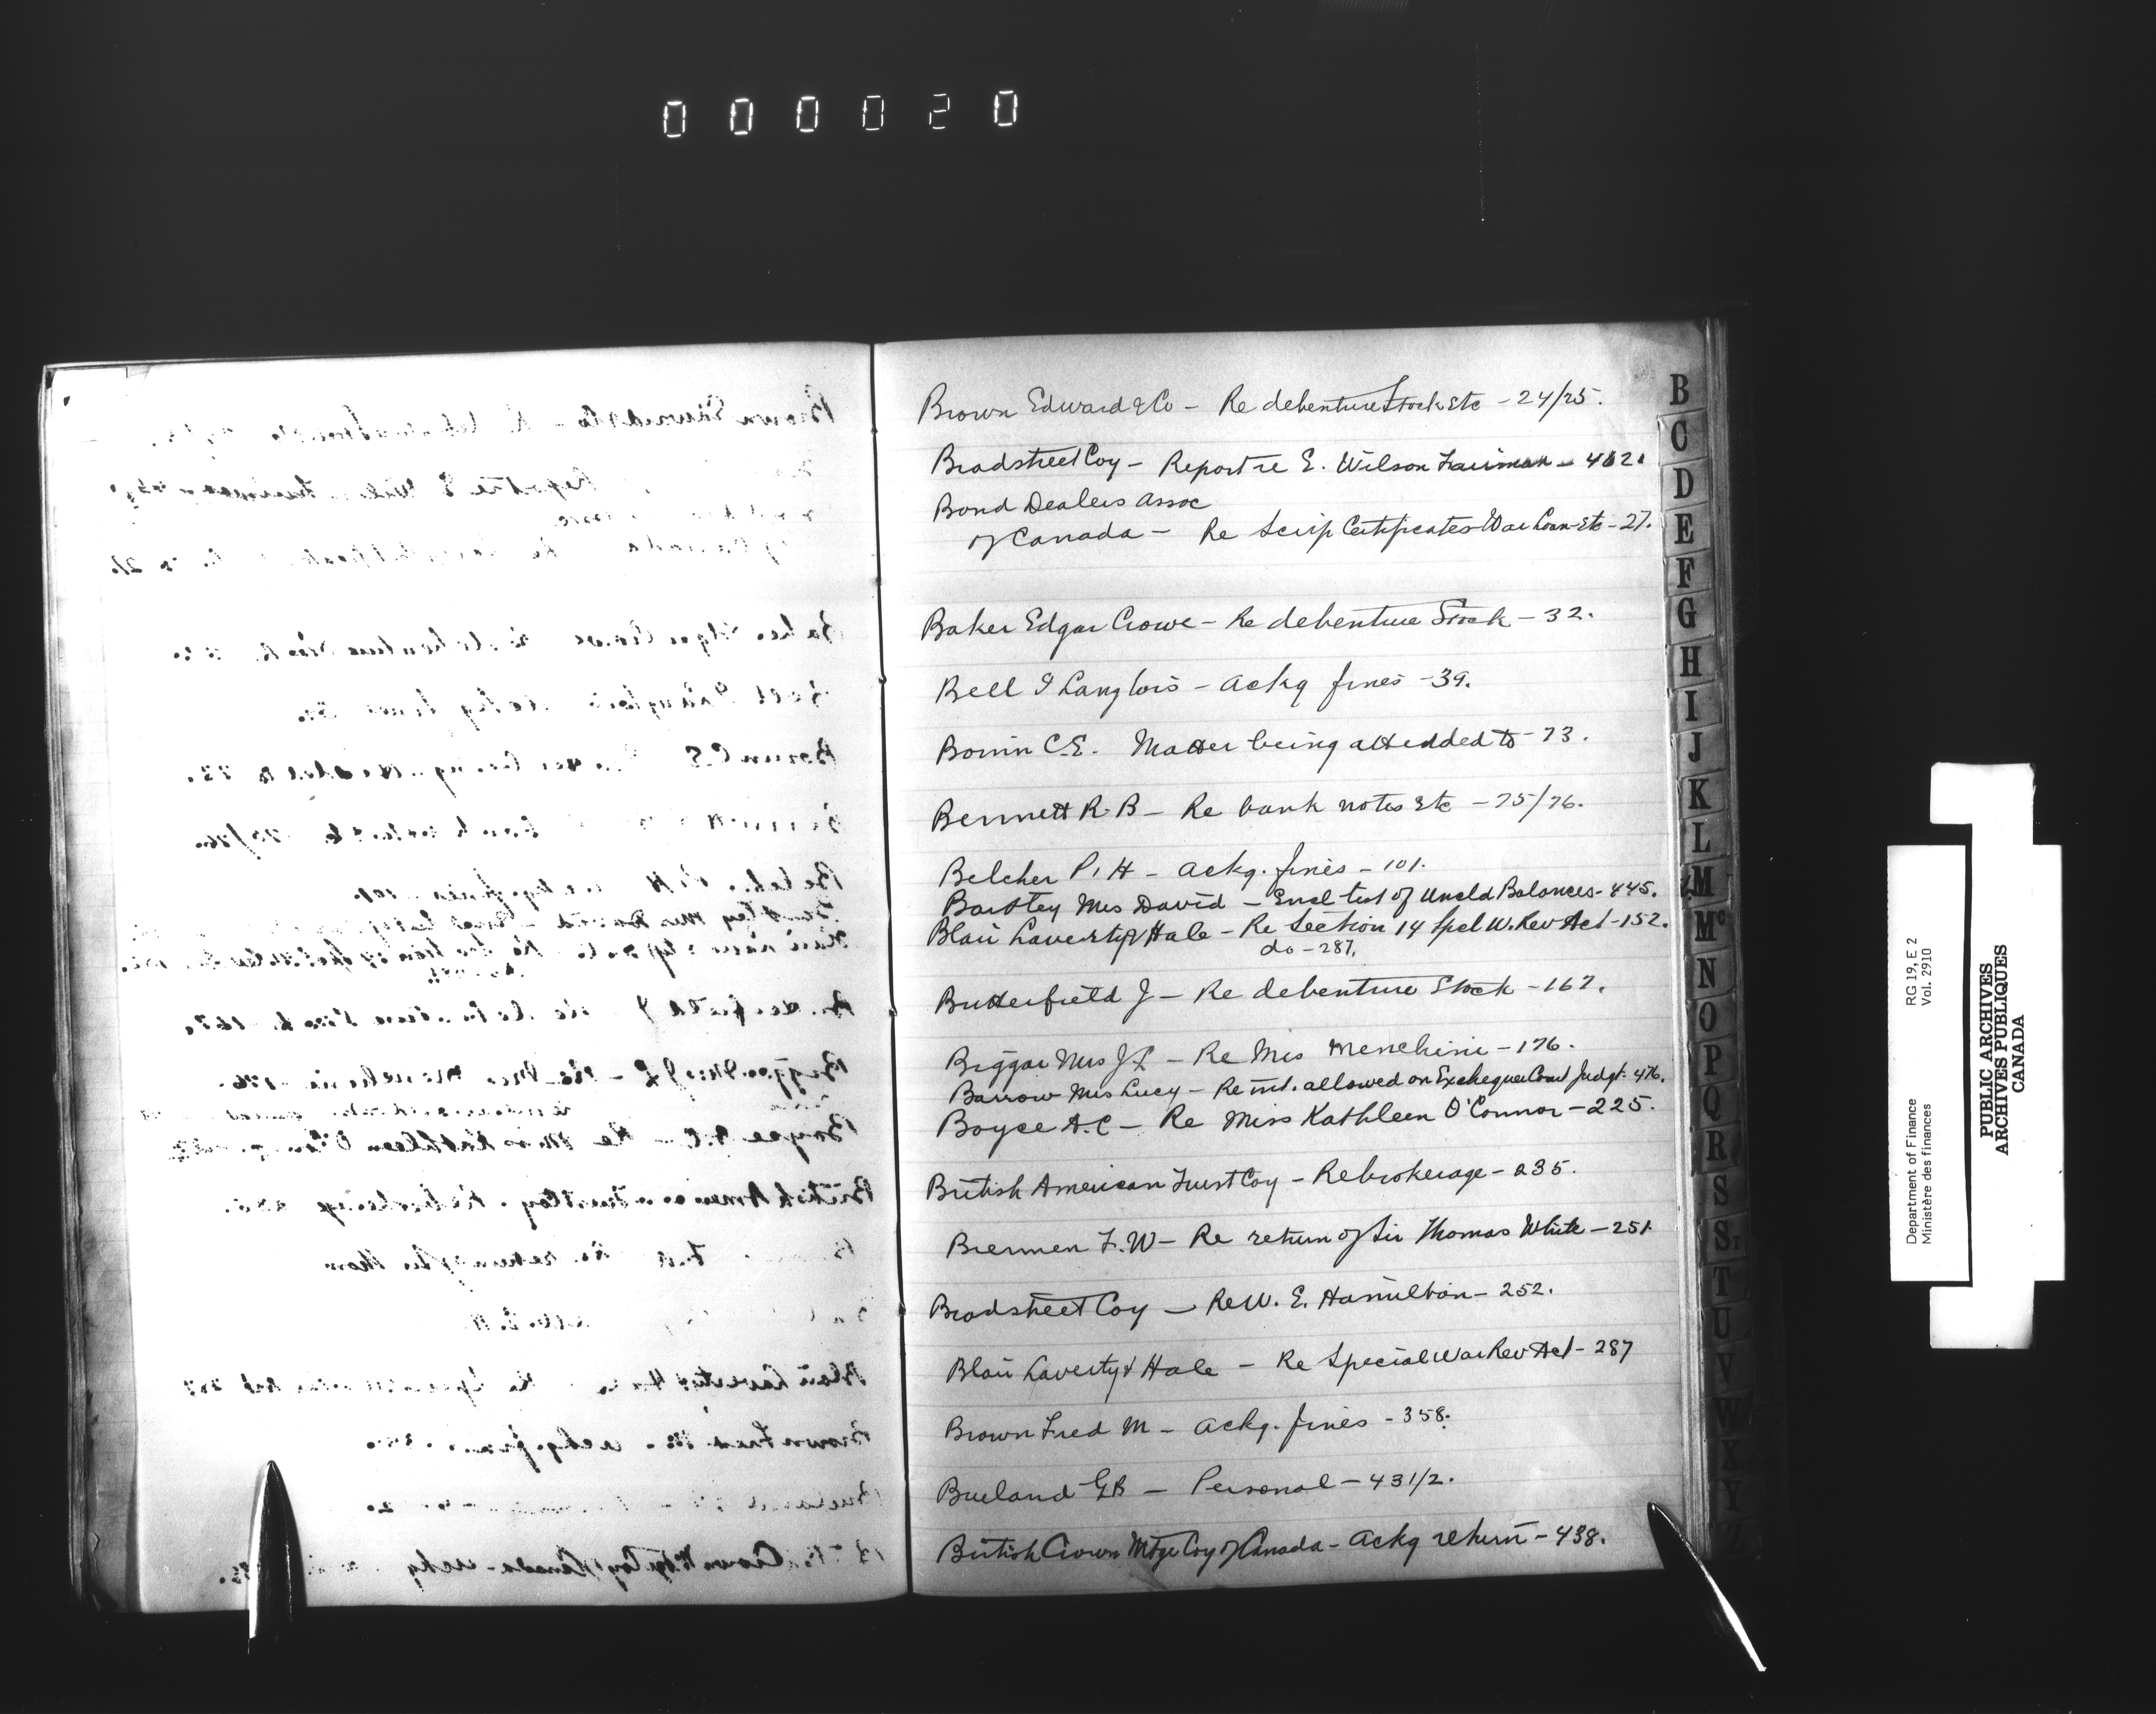 000020
Brown Edward & Co - Re debenture Stock Etc - 24/25.
Bradstreet Coy - Report re E. Wilson Fairman - 462.
Bond Dealers Assoc
of Canada - Re Scrip Certificates War Loan Etc - 27.
Baker Edgar Crowe - Re debenture Stock - 32.
Bell & Langlois - Ackg fines - 39.
C.E. Matter being attedded to - 73.
Bennett R.B - Re bank notes Etc - 75/76.
Belcher P. H - Ackg. fines - 101.
Mrs David - Encl list of Uncld Balances - 445.
Blair Laverty & Hale - Re Section 14 Spel W. Rev Act - 152.
do - 287.
Butterfield J - Re debenture Stock - 167.
Biggar Mrs J L - Re Mrs Menchini - 176.
Barrow Mrs Lucy - Re int. allowed on Exchequer Court Judgt. 476.
Boyce A.C - Re Miss Kathleen O'Connor - 225.
British American Trust Coy - Re brokerage - 235.
F. W - Re return of Sir Thomas White - 251.
Bradstreet Coy - Re W. E. Hamilton - 252.
Blair Laverty & Hale - Re Special War Rev Act - 287
Brown Fred M - Ackg. fines - 358.
Burland G B - Personal - 431/2.
British Crown Mtge Coy of Canada - Ackg return - 438.
B
C
D
E
F
G
H
I
J
K
L
M
Mc
N
O
P
Q
R
S
St
T
U
V
W
X
Y
Z
Department of Finance RG 19, E 2
Ministère des finances Vol. 2910
PUBLIC ARCHIVES
ARCHIVES PUBLIQUES
CANADA